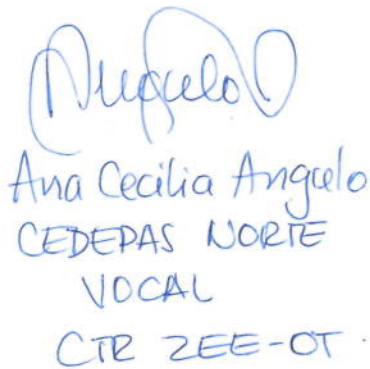 Angulo
Ana Cecilia Angulo
CEDEPAS NORTE
VOCAL
CTR ZEE-OT.